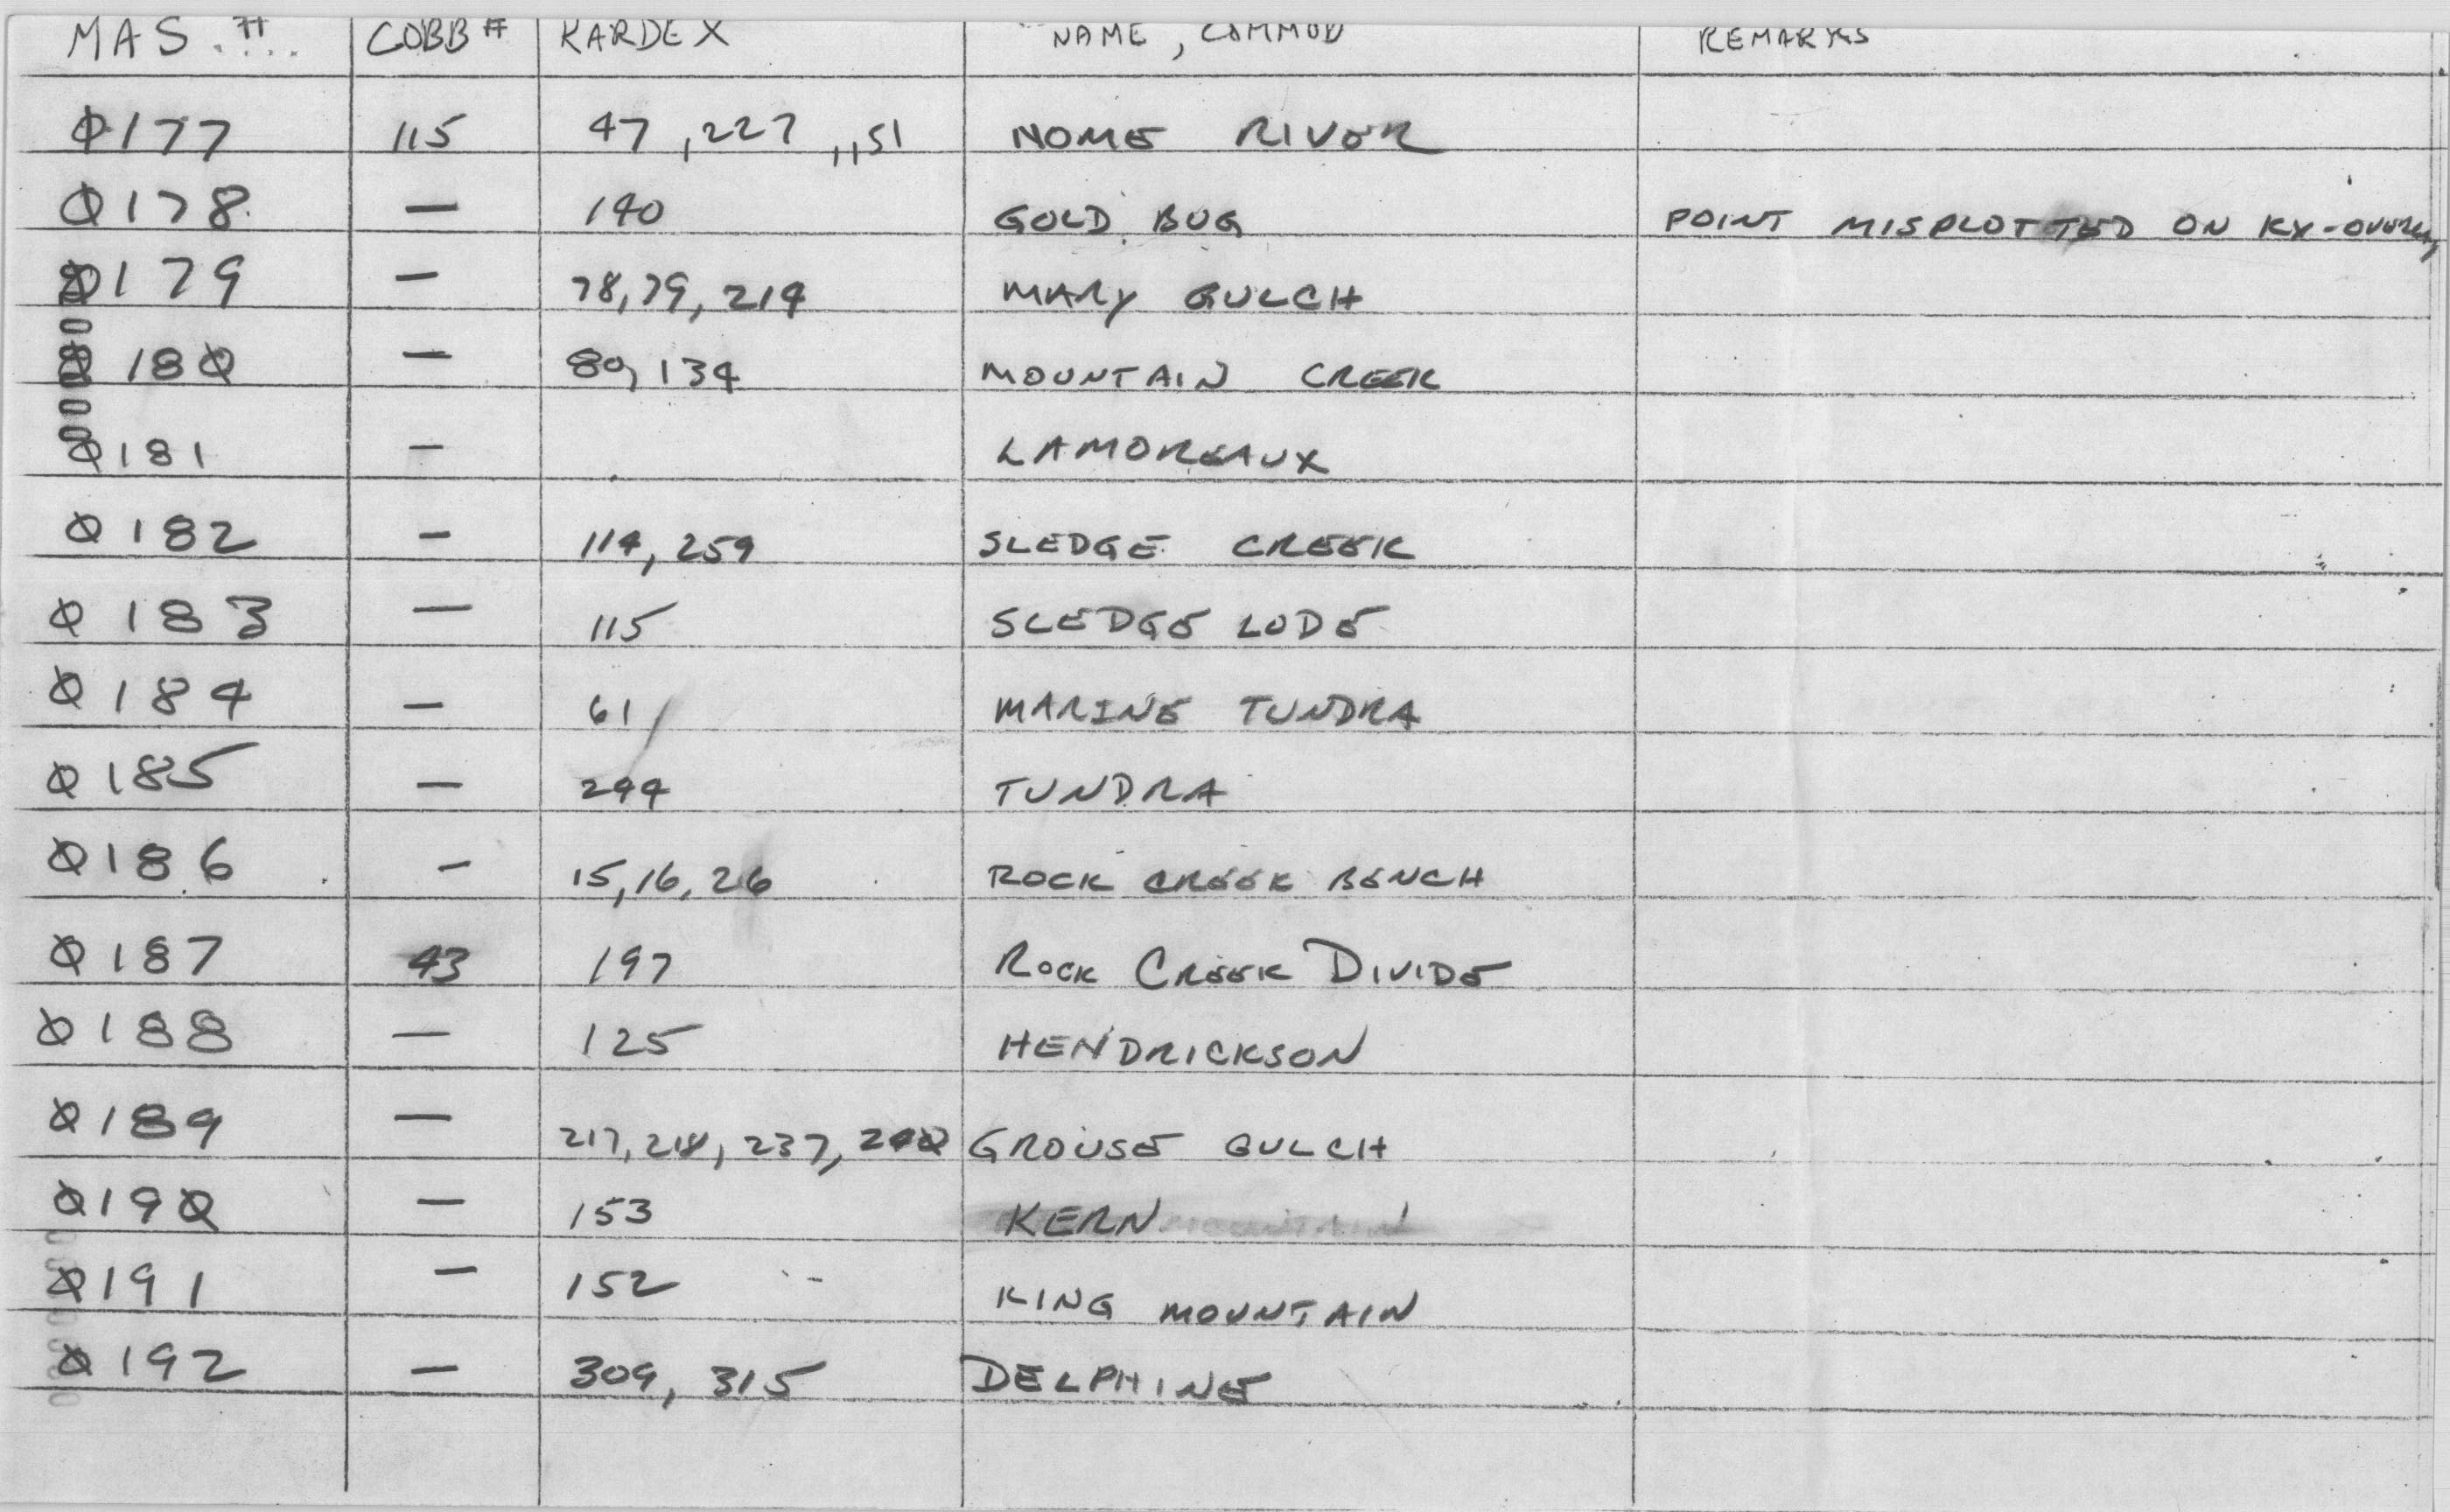 MAS. # COBB # KARDEX NAME, COMMON REMARKS
0177 115 47, 227, 151 NOME RIVER
0178 — 140 GOLD BUG POINT MISPLOTTED ON KX-OVERLAY
0179 — 78, 79, 214 MARY GULCH
0180 — 80, 134 MOUNTAIN CREEK
0181 — LAMOREAUX
0182 — 114, 259 SLEDGE CREEK
0183 — 115 SLEDGE LODE
0184 — 61 MARINE TUNDRA
0185 — 244 TUNDRA
0186 — 15, 16, 26 ROCK CREEK BENCH
0187 43 197 ROCK CREEK DIVIDE
0188 — 125 HENDRICKSON
0189 — 217, 218, 237, GROUSE GULCH
0190 — 153 KERN
0191 — 152 KING MOUNTAIN
0192 — 309, 315 DELPHINE